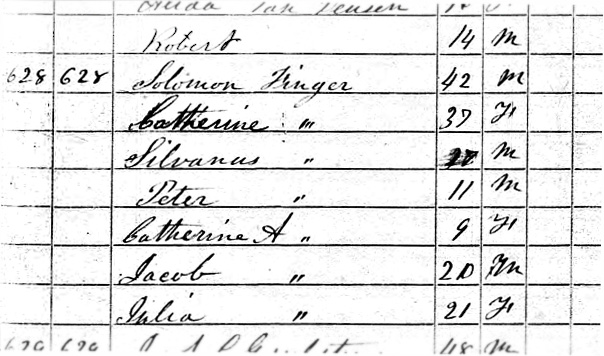 Robert 14 m
628 628 Solomon Finger 42 m
Catherine " 37 F
Silvanus " m
Peter " 11 m
Catherine A " 9 F
Jacob " 20 m
Julia " 21 F
48 m